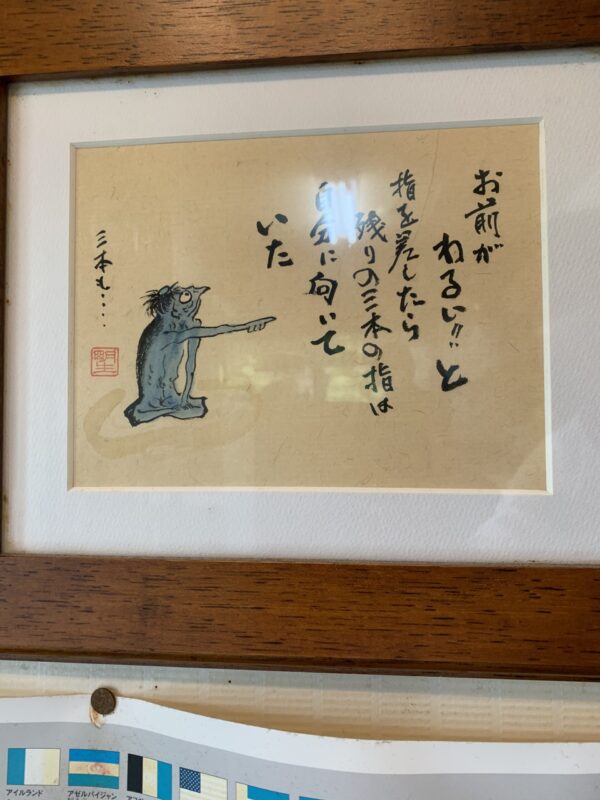 お前が
わるい!!と
指を差したら
残りの三本の指は
自分に向いて
いた
三本も・・・・
アイルランド
アゼルバイジャン